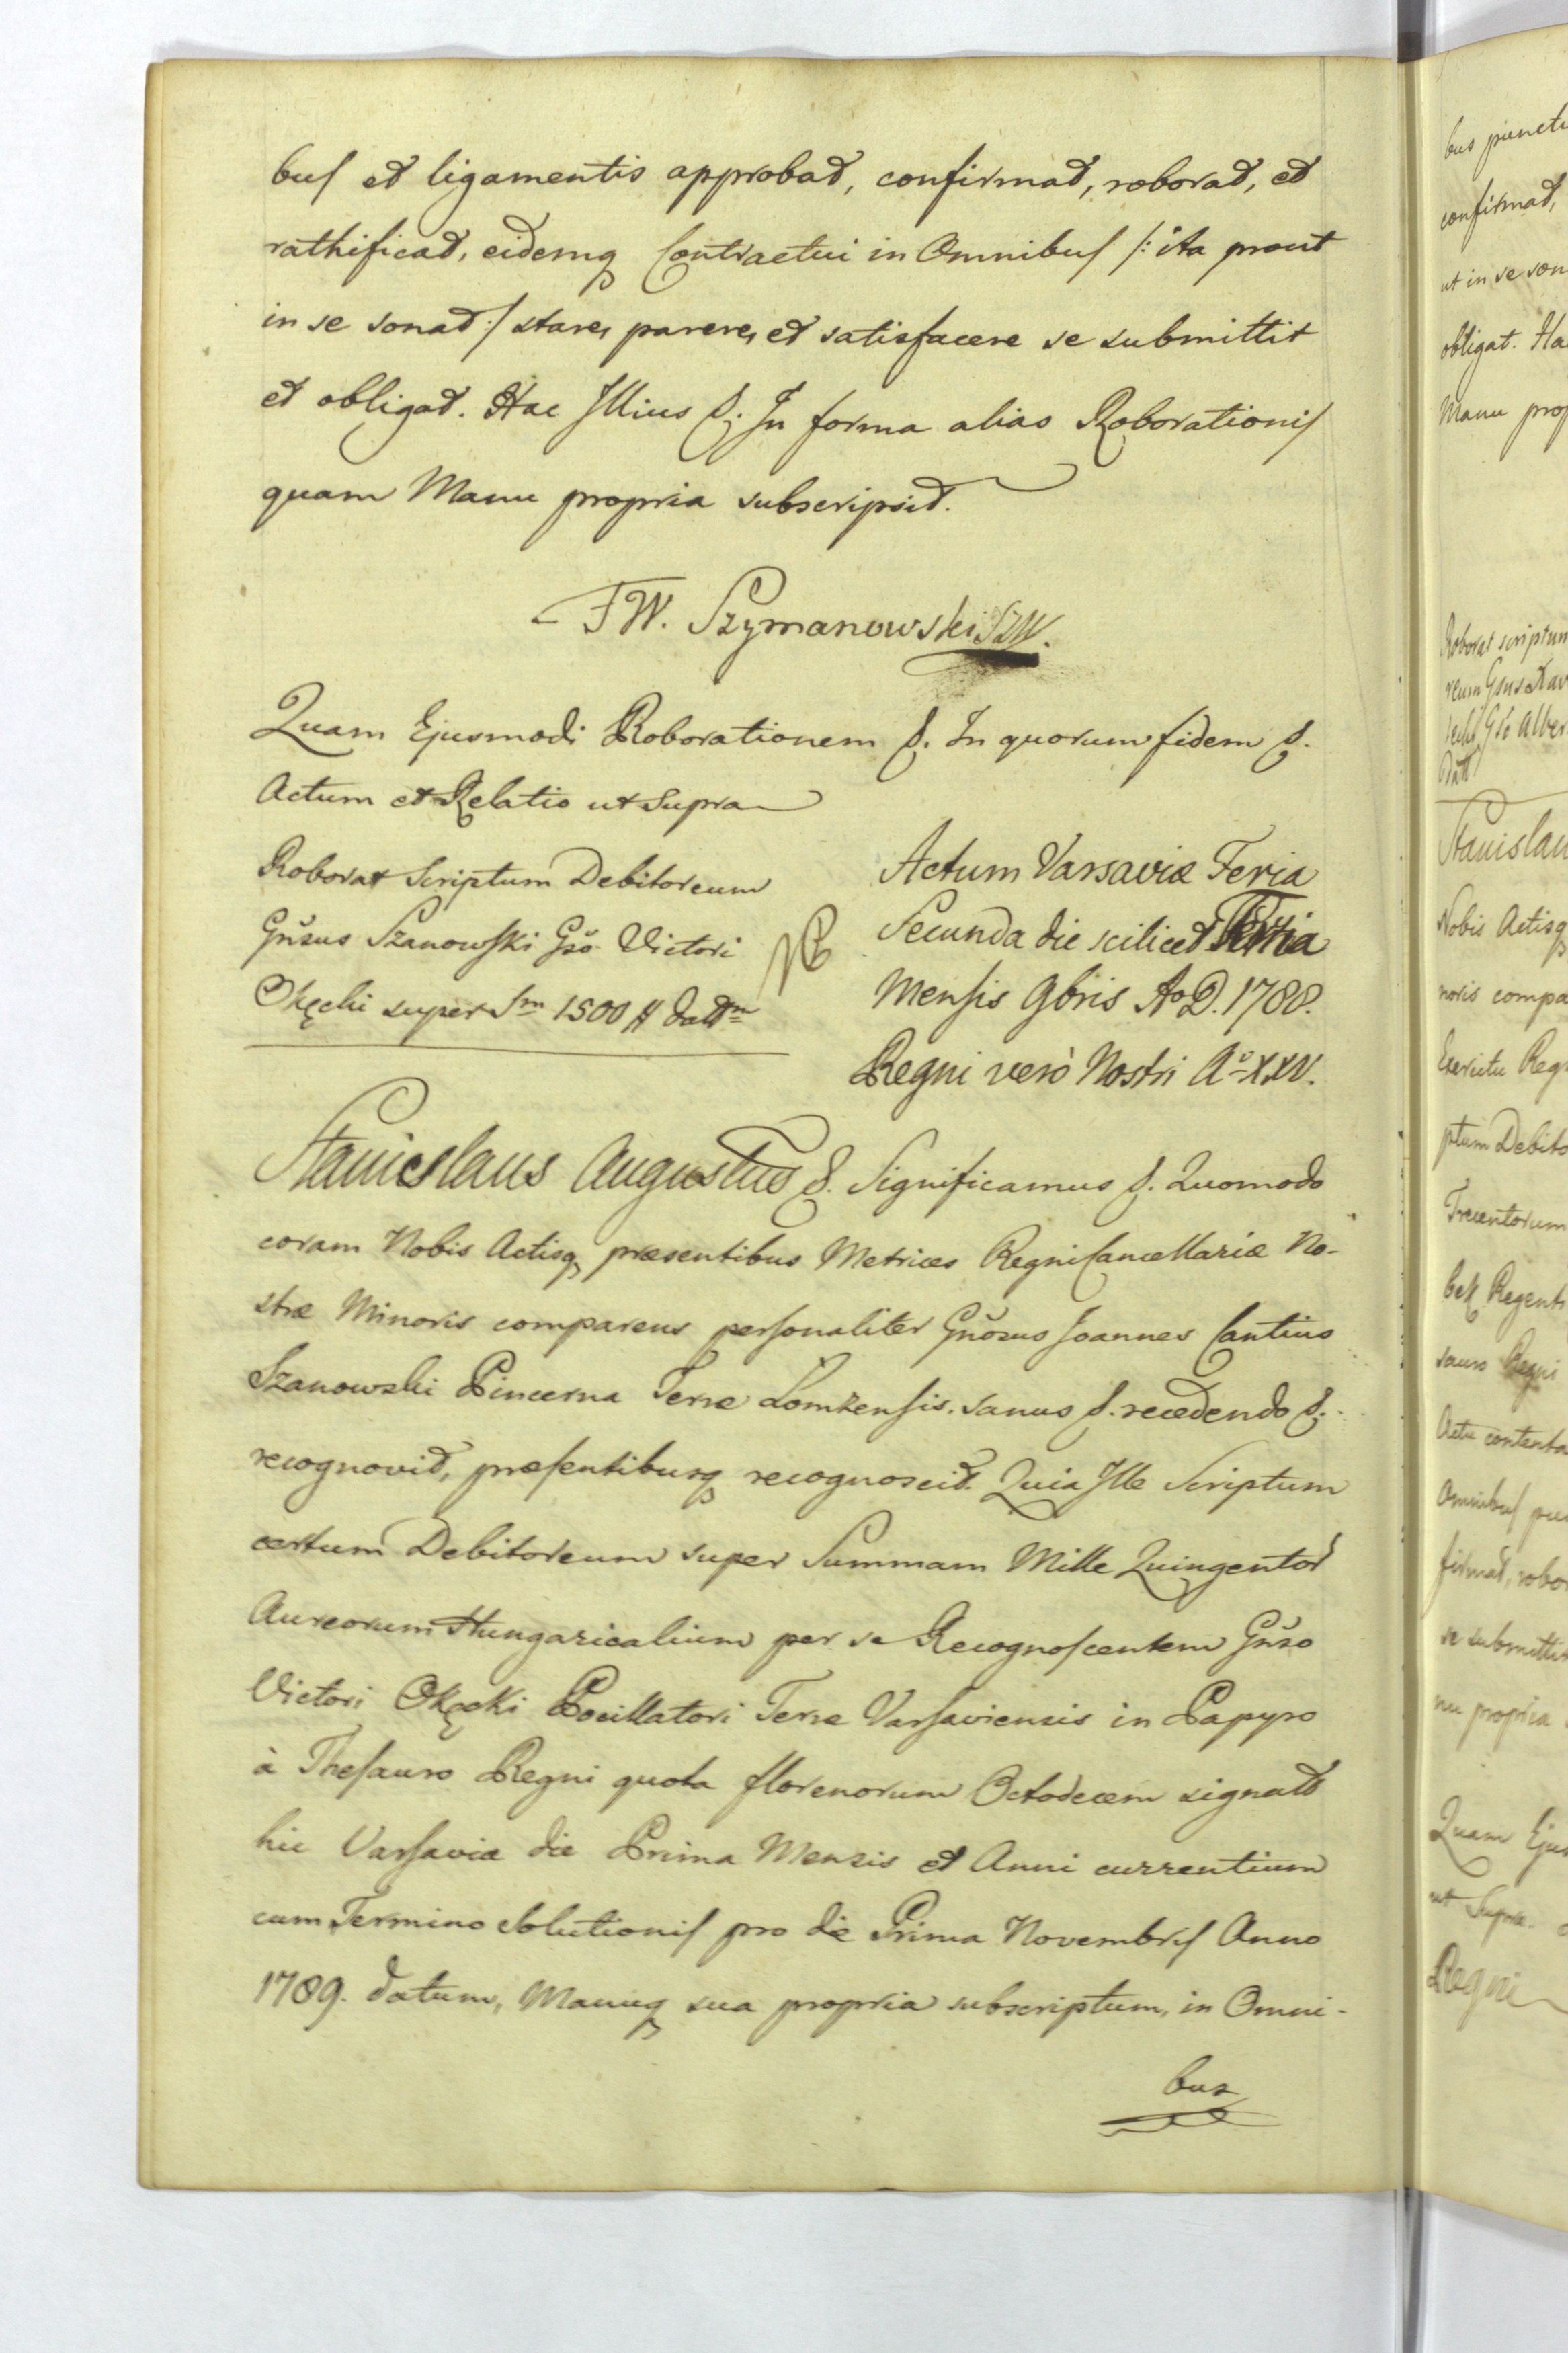 bus et ligamentis approbat, confirmat, roborat, et
rathificat, eidemq Contractui in Omnibus /: ita prout
in se sonat :/ stare, parere, et satisfacere se submittit
et obligat. Hac Illius &. In forma alias Roborationis
quam Manu propria subscripsit.
FW. Szymanowski SZW.
Quam Ejusmodi Roborationem &. In quorum fidem &.
Actum et Relatio ut Supra
Roborat Scriptum Debitoreum
Gnsus Szanowski Gso Victori
Okęcki super Sm 1500 # dattm
Actum Varsaviæ Feria
Secunda die scilicet Tertia
Mensis 9bris Ao D. 1788.
Regni verò Nostri Ao XXV.
Stanislaus Augustus &. Significamus &. Quomodo
coram Nobis Actisq præsentibus Metrices Regni Cancellariæ No-
stræ Minoris comparens personaliter Gnosus Joannes Cantius
Szanowski Pincerna Terræ Lomzensis. sanus &. recedendo &.
recognovit, præsentibusq recognoscit. Quia Ille Scriptum
certum Debitoreum super Summam Mille Quingentor
Aureorum Hungaricalium per se Recognoscentem Gnso
Victori Okęcki Pocillatori Terræ Varsaviensis in Papyro
à Thesauro Regni quota florenorum Octodecem signatto
hic Varsaviæ die Prima Mensis et Anni currentium
cum Termino Solutionis pro die Prima Novembris Anno
1789. datum, Manuq sua propria subscriptum, in Omni-
bus
bus puncti
confirmat,
ut in se son
obligat. Ha
Manu prop
Roborat scriptum
reum Gnsus
Gso Alber
Datt
Stanislau
Nobis Actisq
noris compa
Exercitu Reg
ptum Debito
Trecentorum
Regent
sauro Regni
Actu contenta
Omnibus pu
firmat, robo
se submittit
nu propria
Quam Eju
ut Supra
Regni